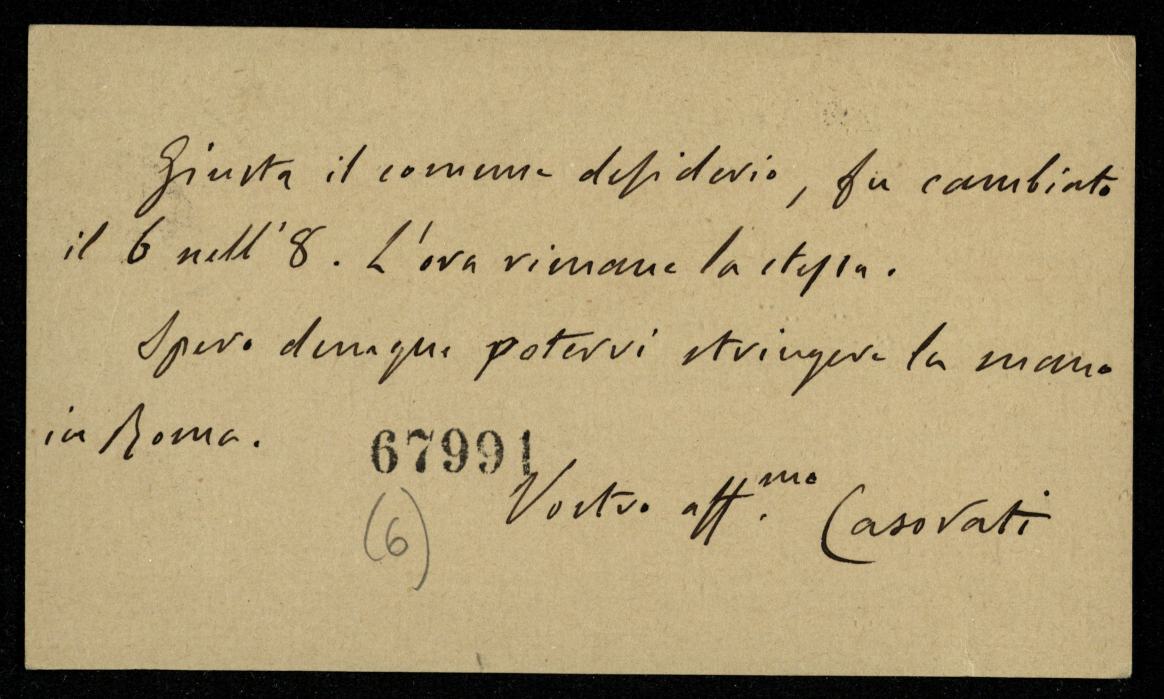 Giusta il comune desiderio, fu cambiato
il 6 nell'8. L'ora rimane la stessa.
Spero dunque potervi stringere la mano
in Roma.
67991
Vostro aff.mo Casorati
(6)